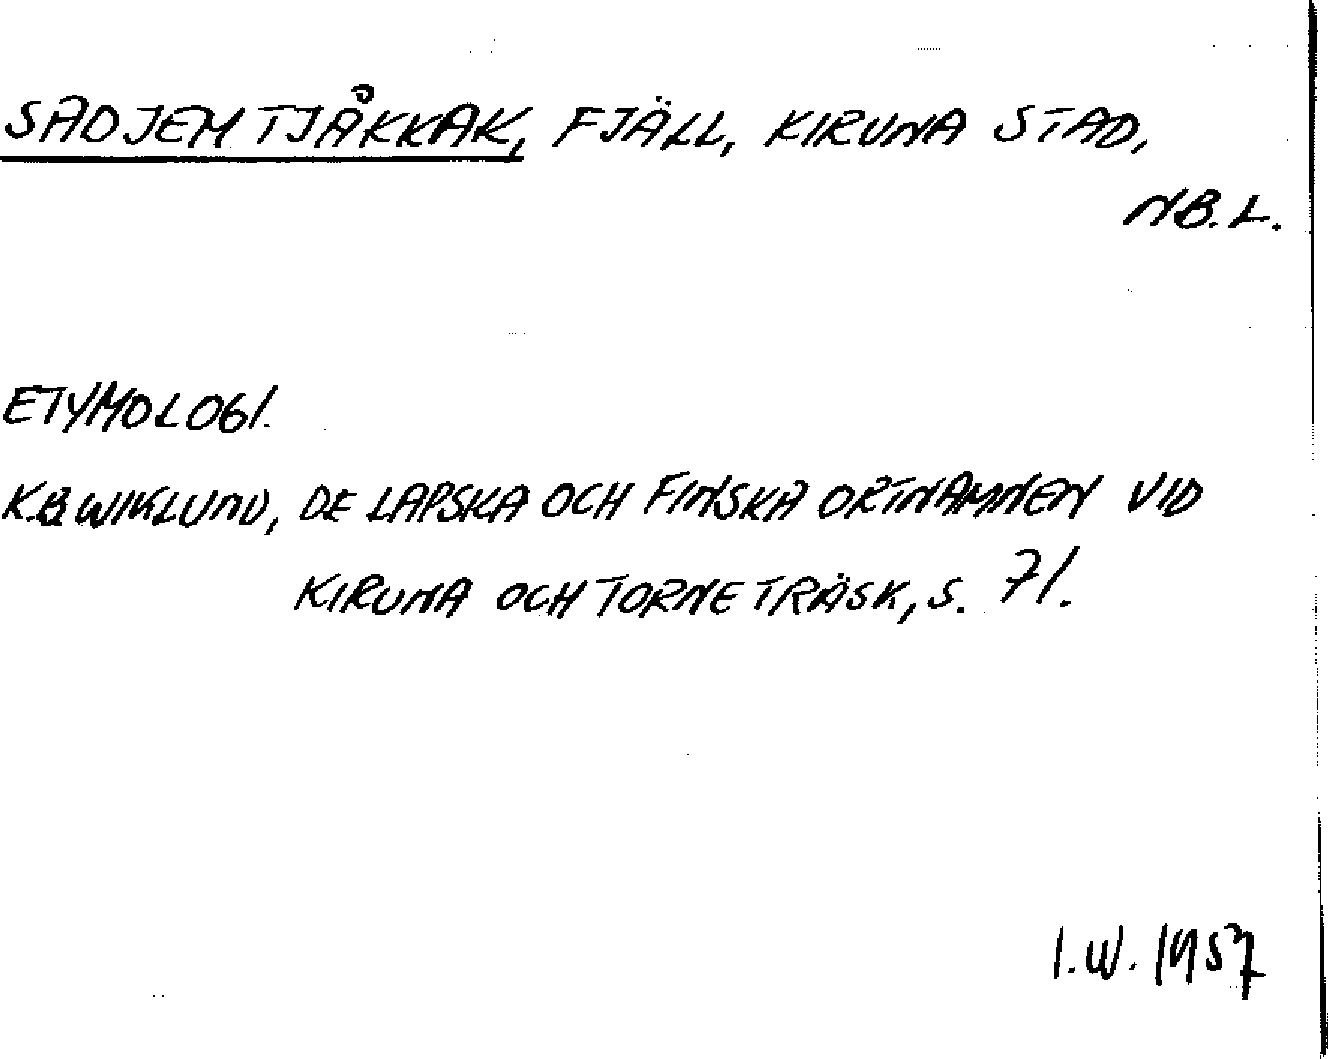 SADJEM TJÅKKAK, FJÄLL, KIRUNA STAD,
NB. L.
ETYMOLOGI.
K.B. WIKLUND, DE LAPSKA OCH FINSKA ORTNAMNEN VID
KIRUNA OCH TORNE TRÄSK, S. 71.
I.W. 1957